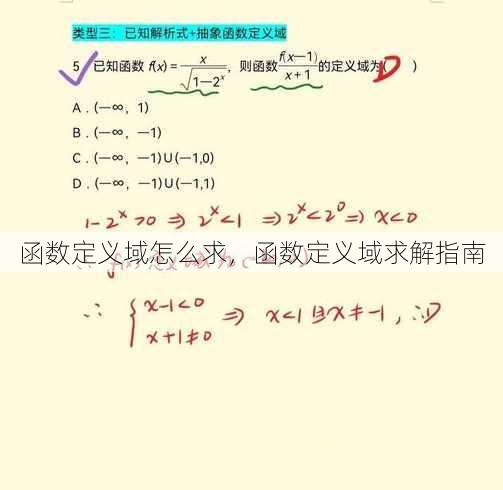 类型三：已知解析式+抽象函数定义域
5 已知函数 f(x)=x/√(1−2^x)，则函数 f(x−1)/(x+1) 的定义域为( D )
A．(−∞，1)
B．(−∞，−1)
C．(−∞，−1)∪(−1,0)
D．(−∞，−1)∪(−1,1)
1-2^x>0 ⇒ 2^x<1 ⇒ 2^x<2^0 ⇒ x<0
函数定义域怎么求，函数定义域求解指南
∴ { x-1<0
x+1≠0 ⇒ x<1且x≠-1，∴D